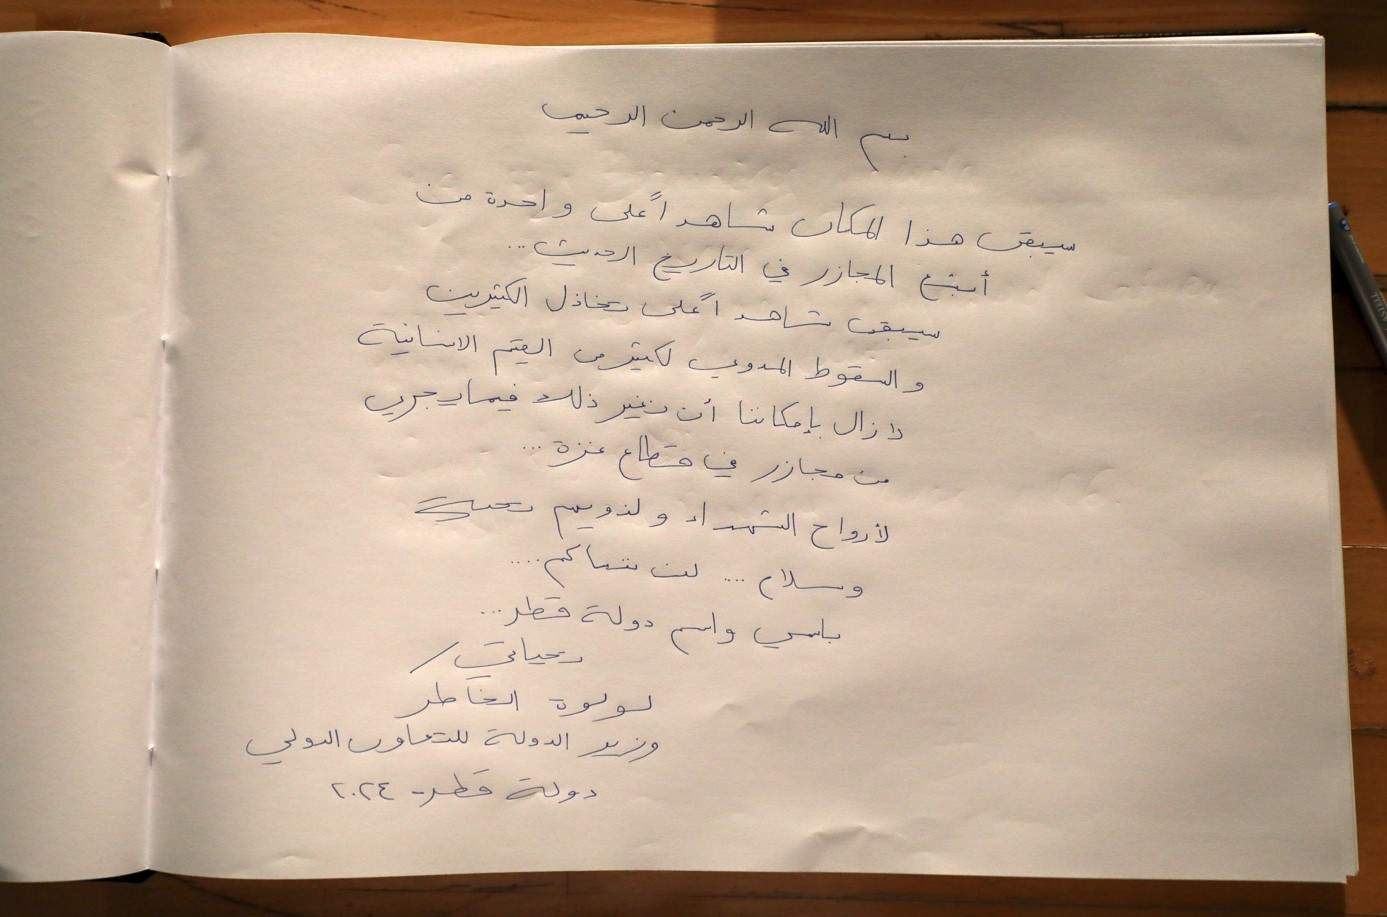 بسم الله الرحمن الرحيم
سيبقى هذا المكان شاهداً على واحدة من
أبشع المجازر في التاريخ الحديث...
سيبقى شاهداً على تخاذل الكثيرين
والسقوط المدوي لكثير من القيم الانسانية
لازال بإمكاننا أن نغير ذلك فيما يجري
من مجازر في قطاع غزة...
لأرواح الشهداء ولذويهم تحية
وسلام... لن ننساكم....
باسمي واسم دولة قطر...
تحياتي/
لولوة الخاطر
وزير الدولة للتعاون الدولي
دولة قطر- ٢٠٢٤